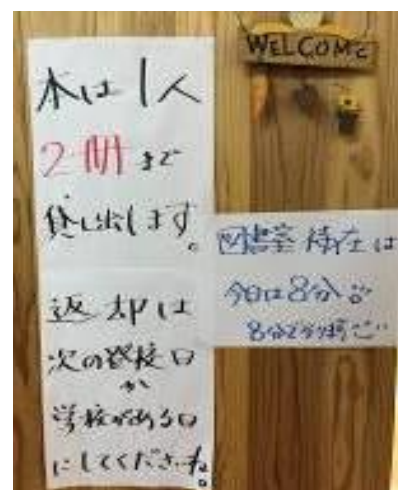 WELCOME
本は1人
2冊まで
貸し出します。
返却は
次の登校日
か
学校がある日
にしてくださいね。
図書室滞在は
今日は8分
8分